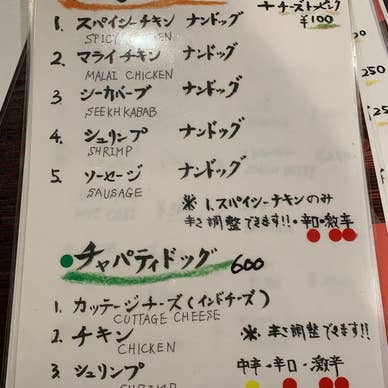 +チーズトッピング
¥100
1. スパイシーチキン ナンドッグ
SPICY CHICKEN
2. マライチキン ナンドッグ
MALAI CHICKEN
3. シーカバブ ナンドッグ
SEEKH KABAB
4. シュリンプ ナンドッグ
SHRIMP
5. ソーセージ ナンドッグ
SAUSAGE
※ 1. スパイシーチキンのみ
辛さ調整できます!!・辛口・激辛
チャパティドッグ 600
1. カッテージチーズ(インドチーズ)
CUTTAGE CHEESE
2. チキン
CHICKEN
※ 辛さ調整できます!!
中辛・辛口・激辛
3. シュリンプ
SHRIMP
250
250